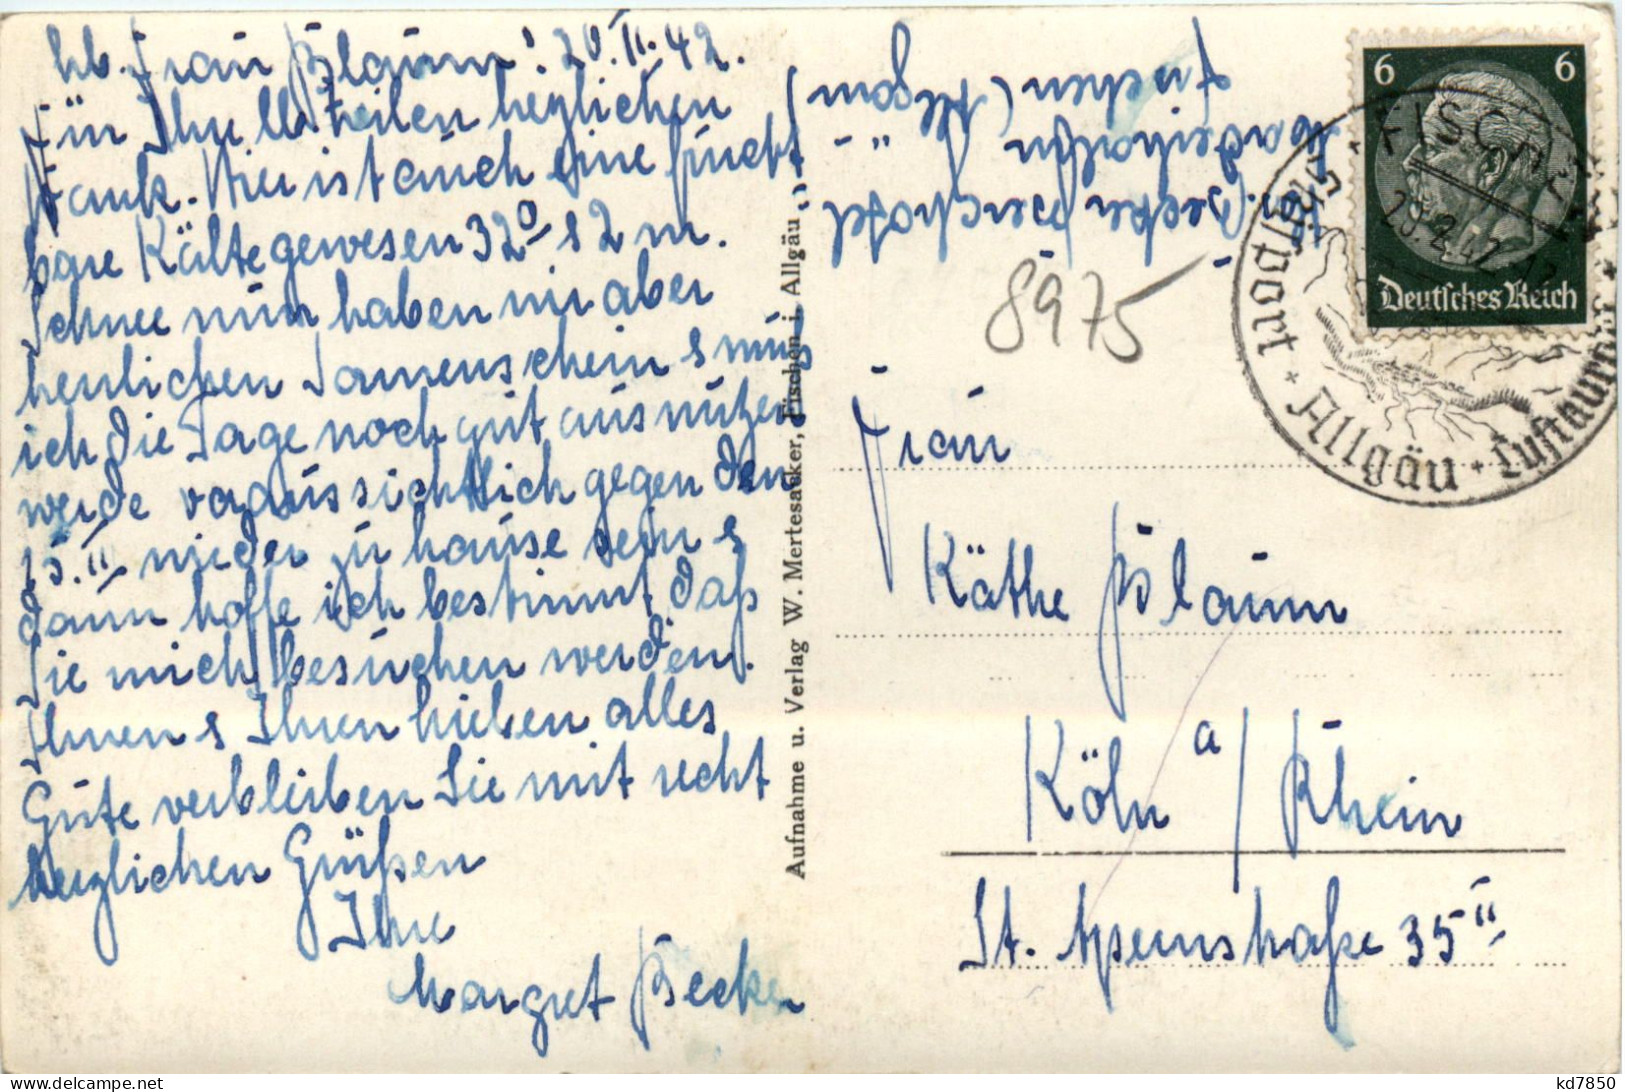 lb. Frau Blaum! 20.II.42.
Für Ihre lb. Zeilen herzlichen
Dank. Hier ist auch eine furcht
bare Kälte gewesen 32° & 2 m.
Schnee nun haben wir aber
herrlichen Sonnenschein & muß
ich die Tage noch gut ausnützen
werde voraussichtlich gegen den
15.III wieder zu hause sein &
dann hoffe ich bestimmt daß
Sie mich besuchen werden.
Ihnen & Ihren lieben alles
Gute verbleiben Sie mit recht
herzlichen Grüßen
Ihre
Margret Becker
Aufnahme u. Verlag W. Mertesacker, Fischen i. Allgäu
Becker
Fischen (Allgäu)
8975
6 6
Deutsches Reich
FISCHEN
20.2.42
Allgäu * Luftkurort
Skisportort
Frau
Käthe Blaum
Köln a/Rhein
St. Apernstraße 35 II
kd7850